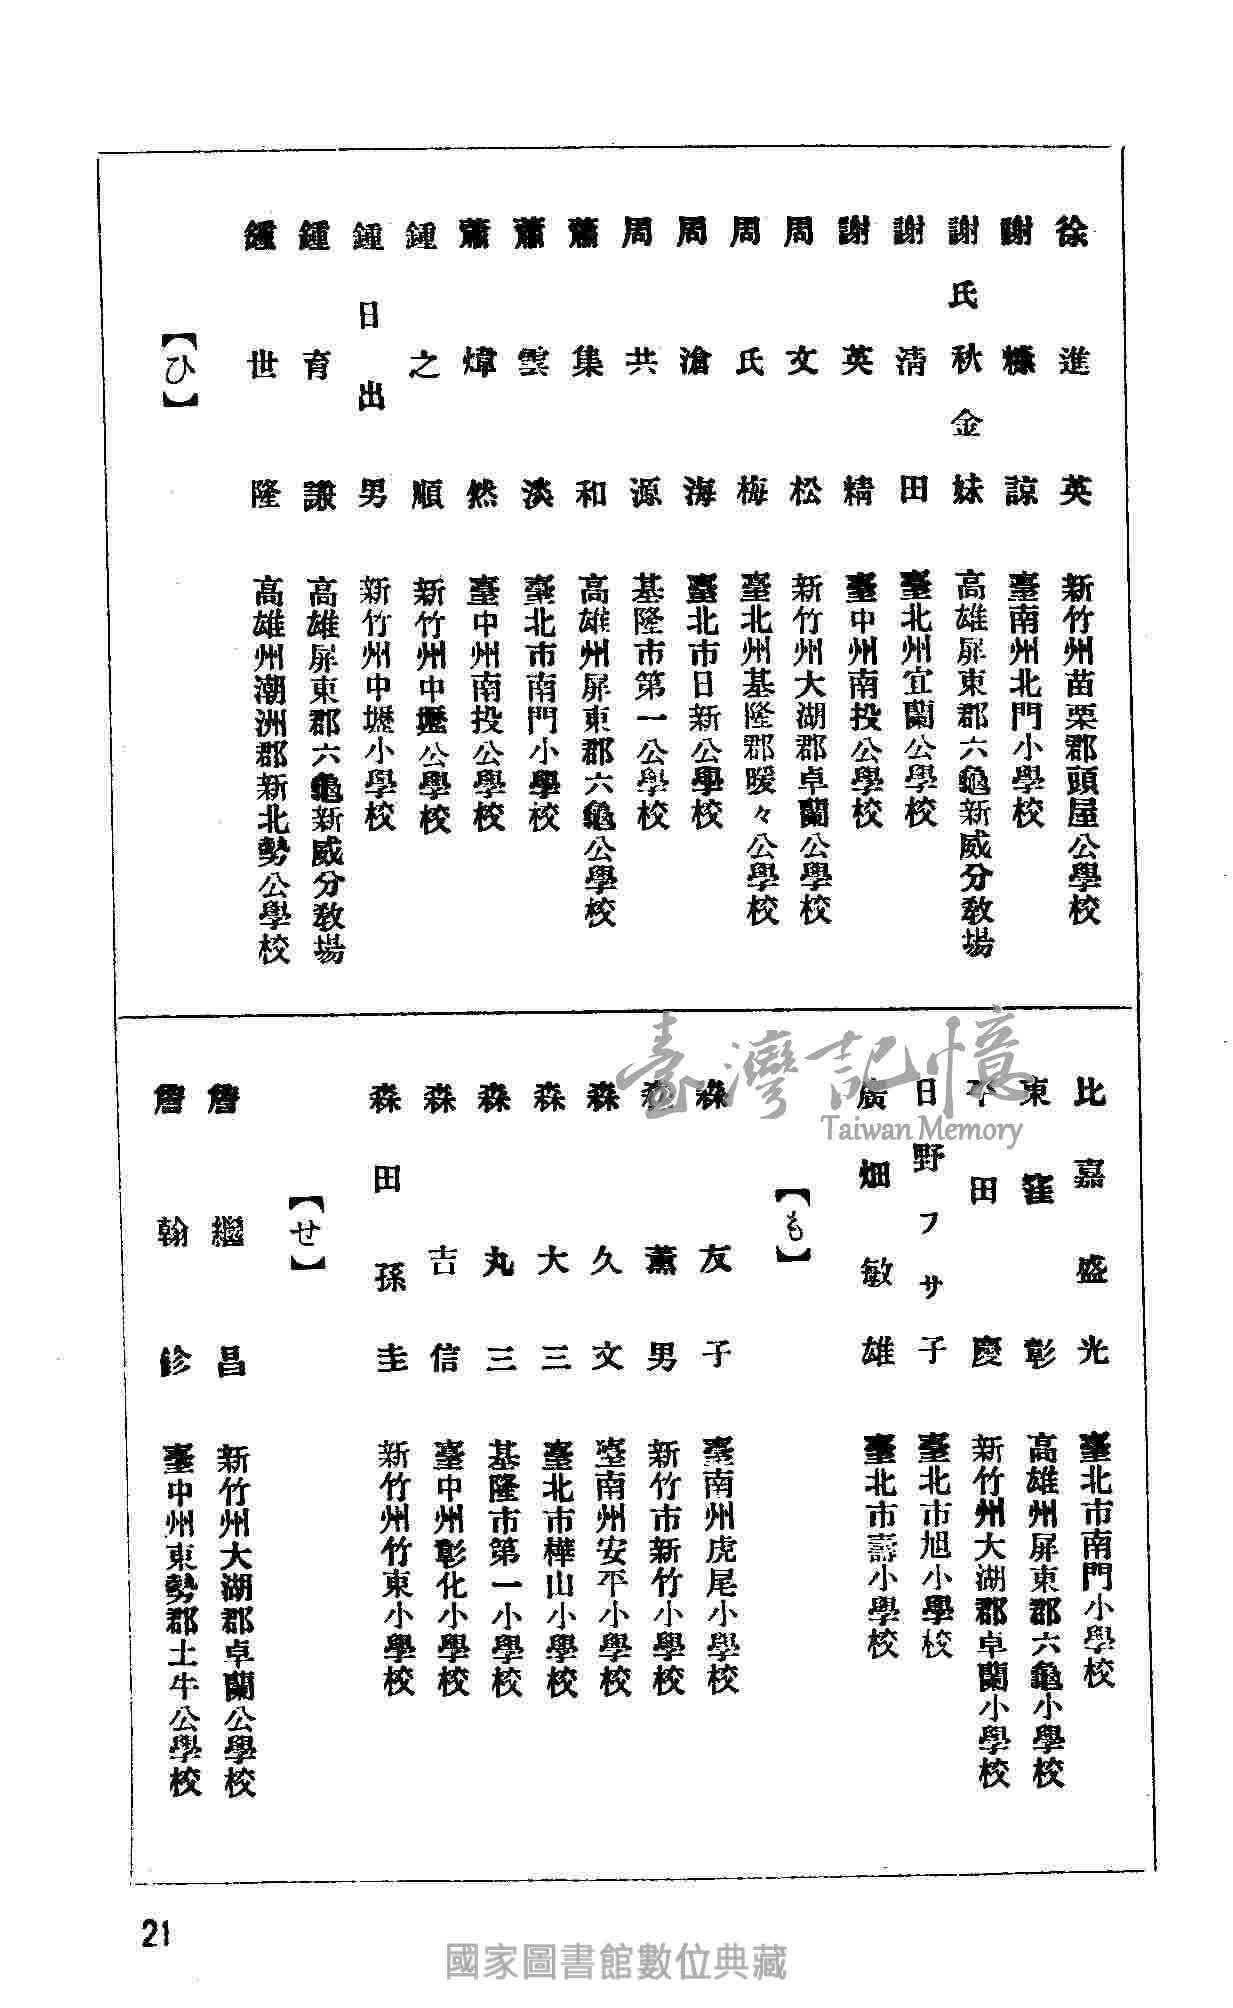 徐進英 新竹州苗栗郡頭屋公學校
謝諒 臺南州北門小學校
謝氏秋金妹 高雄屏東郡六龜新威分教場
謝清田 臺北州宜蘭公學校
謝英精 臺中州南投公學校
周文松 新竹州大湖郡卓蘭公學校
周氏梅 臺北州基隆郡暖々公學校
周滄海 臺北市日新公學校
周共源 基隆市第一公學校
蕭集和 高雄州屏東郡六龜公學校
蕭雲淡 臺北市南門小學校
蕭煒然 臺中州南投公學校
鍾之順 新竹州中壢公學校
鍾日出男 新竹州中壢小學校
鍾育謙 高雄屏東郡六龜新威分教場
鍾世隆 高雄州潮洲郡新北勢公學校
【ひ】
比嘉盛光 臺北市南門小學校
東窪彰 高雄州屏東郡六龜小學校
平田慶 新竹州大湖郡卓蘭小學校
日野フサ子 臺北市旭小學校
廣畑敏雄 臺北市壽小學校
【も】
森友子 臺南州虎尾小學校
森薰男 新竹市新竹小學校
森久文 臺南州安平小學校
森大三 臺北市樺山小學校
森丸三 基隆市第一小學校
森吉信 臺中州彰化小學校
森田孫圭 新竹州竹東小學校
【せ】
詹繼昌 新竹州大湖郡卓蘭公學校
詹翰鉁 臺中州東勢郡土牛公學校
21
臺灣記憶
Taiwan Memory
國家圖書館數位典藏